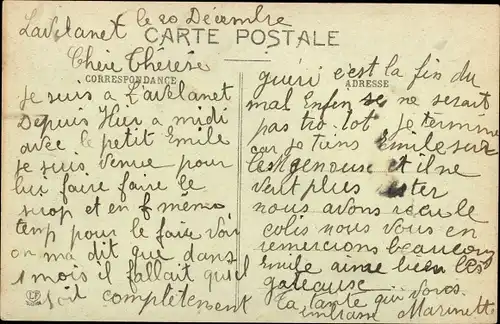 Lavelanet le 20 Décembre
CARTE POSTALE
Chère Thérèse
CORRESPONDANCE
je suis a Lavelanet
Depuis Hier a midi
avec le petit Emile
je suis venue pour
lui faire faire le
sirop et en même
temp pour le faire voir
on ma dit que dans
1 mois il fallait qu'il
soit complètement
ADRESSE
guéri c'est la fin du
mal Enfin se ne serait
pas tro tot je termine
car je tiens Emile sur
les genouse et il ne
veut plus rester
nous avons reçu le
colis nous vous en
remercions beaucoup
Emile aime bien les
gateause
ta tante qui vous
embrasse Marinette
LP